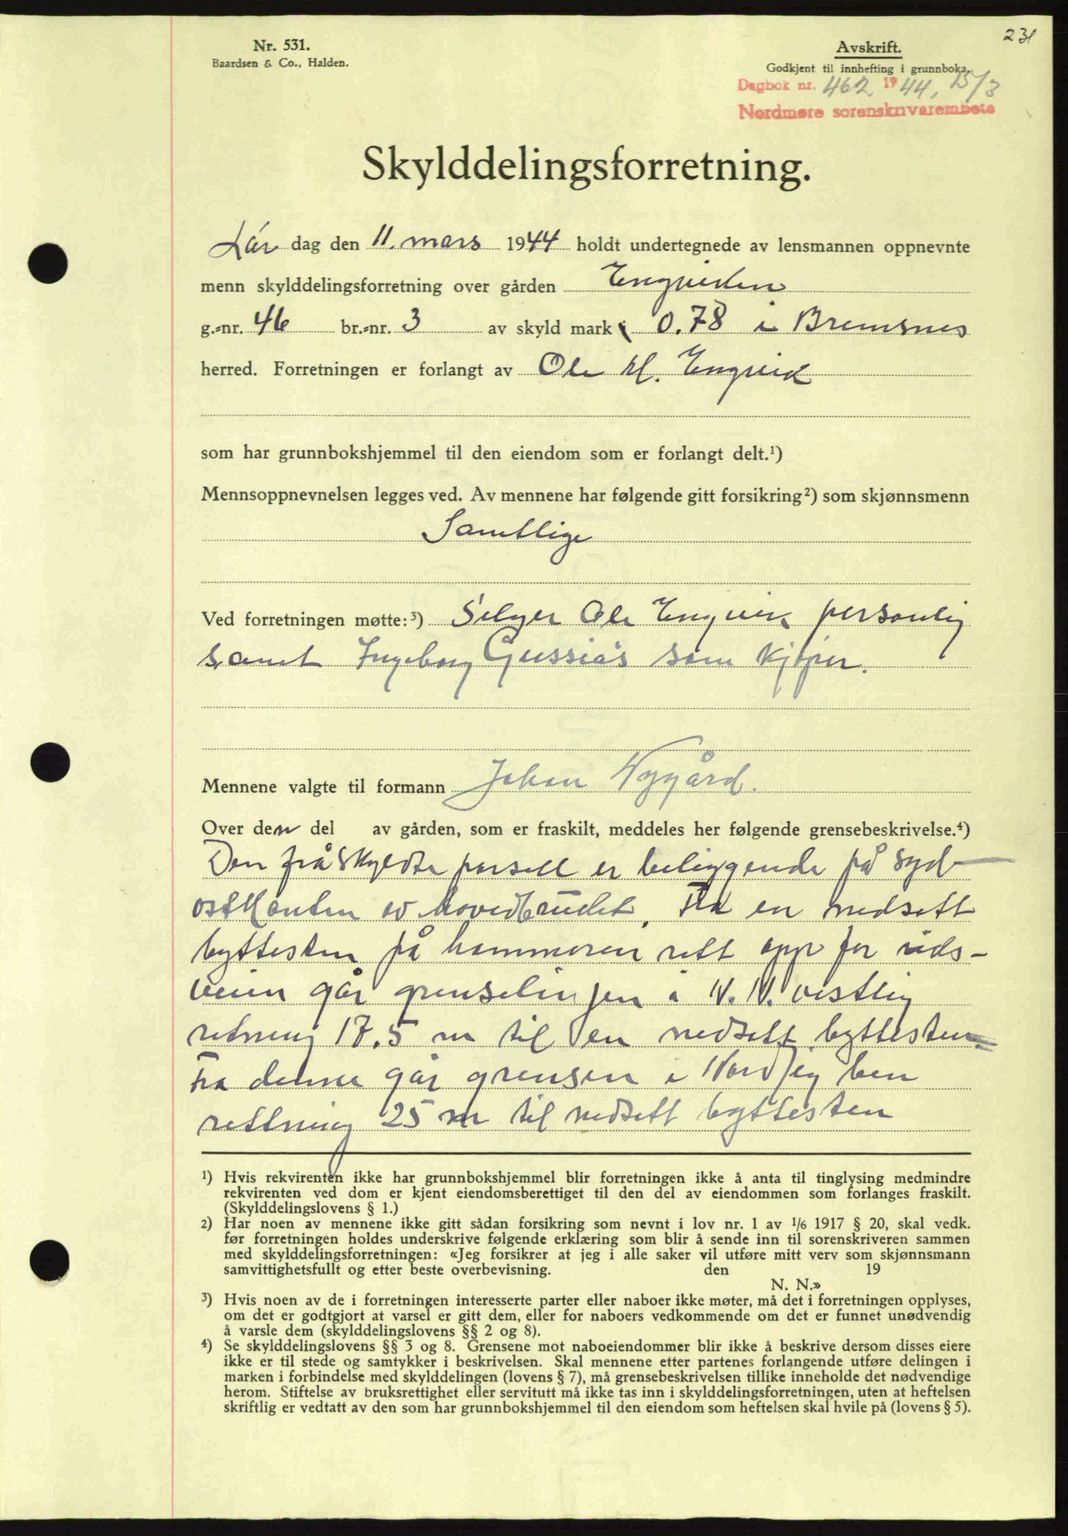 231
Nr. 531.
Baardsen & Co., Halden.
Avskrift.
Godkjent til innhefting i grunnboka.
Dagbok nr. 462 1944, 15/3
Nordmøre sorenskriverembete
Skylddelingsforretning.
Lør dag den 11. mars 1944 holdt undertegnede av lensmannen oppnevnte
menn skylddelingsforretning over gården Engviken
g.-nr. 46 br.-nr. 3 av skyld mark 0.78 i Bremsnes
herred. Forretningen er forlangt av Ole M. Engvik
som har grunnbokshjemmel til den eiendom som er forlangt delt.¹)
Mennsoppnevnelsen legges ved. Av mennene har følgende gitt forsikring²) som skjønnsmenn
Samtlige
Ved forretningen møtte:³) Selger Ole Engvik personlig
samt Ingeborg Gussiås som kjøper.
Mennene valgte til formann Johan Nygård.
Over den del av gården, som er fraskilt, meddeles her følgende grensebeskrivelse.⁴)
Den fråskyldte parsell er beliggende på syd-
ostkanten av hovedbruket. Fra en nedsatt
byttesten på hammeren rett opp for
veien går grenselinjen i N.N. vestlig
retning 17.5 m til en nedsatt byttesten
Fra denne går grensen i Nordlig ben
rettning 25 m til nedsatt byttesten
¹) Hvis rekvirenten ikke har grunnbokshjemmel blir forretningen ikke å anta til tinglysing medmindre
rekvirenten ved dom er kjent eiendomsberettiget til den del av eiendommen som forlanges fraskilt.
(Skylddelingslovens § 1.)
2) Har noen av mennene ikke gitt sådan forsikring som nevnt i lov nr. 1 av 1/6 1917 § 20, skal vedk.
før forretningen holdes underskrive følgende erklæring som blir å sende inn til sorenskriveren sammen
med skylddelingsforretningen: «Jeg forsikrer at jeg i alle saker vil utføre mitt verv som skjønnsmann
samvittighetsfullt og etter beste overbevisning. den 19
N. N.»
³) Hvis noen av de i forretningen interesserte parter eller naboer ikke møter, må det i forretningen opplyses,
om det er godtgjort at varsel er gitt dem, eller for naboers vedkommende om det er funnet unødvendig
å varsle dem (skylddelingslovens §§ 2 og 8).
⁴) Se skylddelingslovens §§ 3 og 8. Grensene mot naboeiendommer blir ikke å beskrive dersom disses eiere
ikke er til stede og samtykker i beskrivelsen. Skal mennene etter partenes forlangende utføre delingen i
marken i forbindelse med skylddelingen (lovens § 7), må grensebeskrivelsen tillike inneholde det nødvendige
herom. Stiftelse av bruksrettighet eller servitutt må ikke tas inn i skylddelingsforretningen, uten at heftelsen
skriftlig er vedtatt av den som har grunnbokshjemmel til den eiendom som heftelsen skal hvile på (lovens § 5).